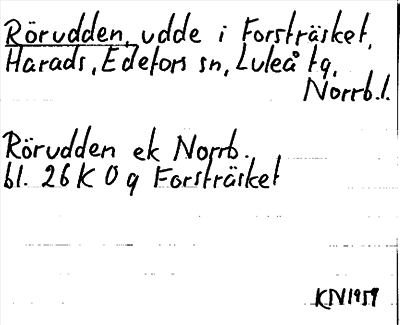 Rörudden, udde i Forsträsket,
Harads, Edefors sn, Luleå tg,
Norrb.l.
Rörudden ek Norrb.
bl. 26 K 0 g Forsträsket
KN 1959